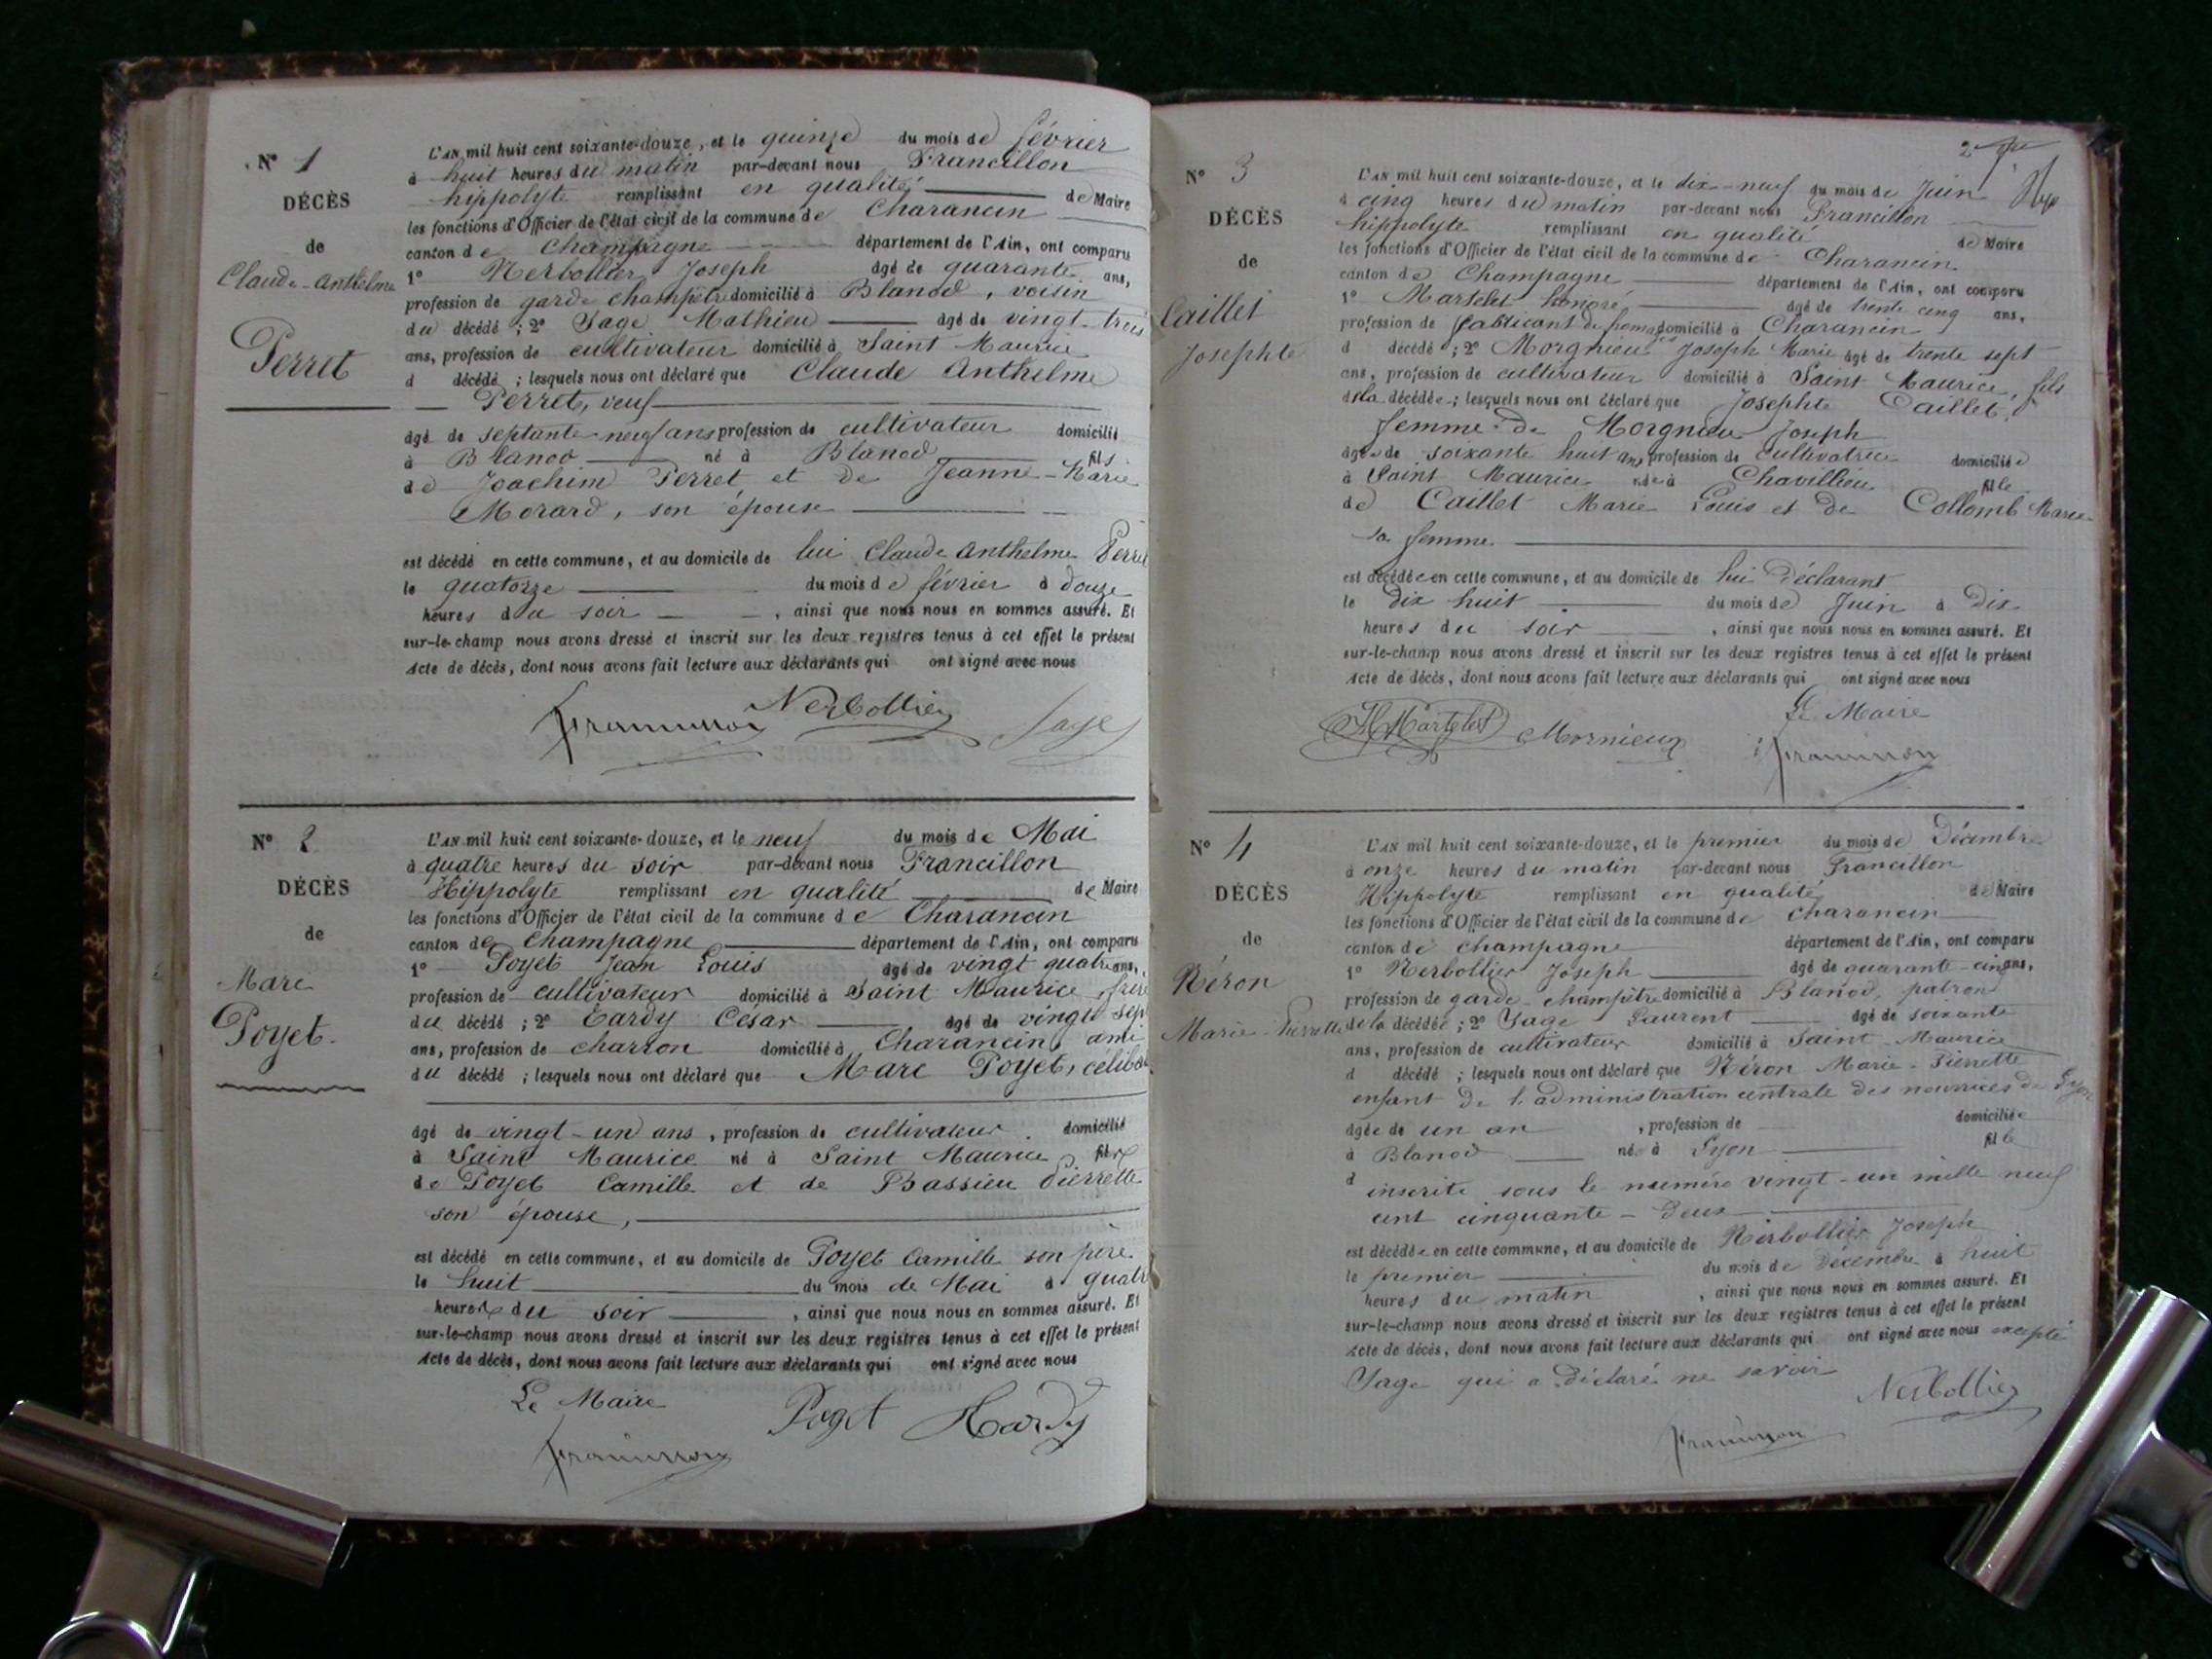 N° 1
DÉCÈS
de
Claude-Anthelme
Perret
L'AN mil huit cent soixante-douze, et le quinze du mois de février
à huit heures du matin par-devant nous Francillon
hippolyte remplissant en qualité de Maire
les fonctions d'Officier de l'état civil de la commune de Charancin
canton de Champagne département de l'Ain, ont comparu
1° Nerbollier Joseph âgé de quarante ans,
profession de garde champêtre domicilié à Blanod, voisin
du décédé ; 2° Sage Mathieu âgé de vingt-trois
ans, profession de cultivateur domicilié à Saint Maurice
d décédé ; lesquels nous ont déclaré que Claude Anthelme
Perret, veuf
âgé de septante-neuf ans profession de cultivateur domicilié
à Blanod né à Blanod fils
de Joachim Perret et de Jeanne-Marie
Morard, son épouse
est décédé en cette commune, et au domicile de lui Claude Anthelme Perret
le quatorze du mois de février à douze
heures du soir , ainsi que nous nous en sommes assuré. Et
sur-le-champ nous avons dressé et inscrit sur les deux registres tenus à cet effet le présent
Acte de décès, dont nous avons fait lecture aux déclarants qui ont signé avec nous
Francillon Nerbollier Sage
N° 2
DÉCÈS
de
Marc
Poyet.
L'AN mil huit cent soixante-douze, et le neuf du mois de Mai
à quatre heures du soir par-devant nous Francillon
Hippolyte remplissant en qualité de Maire
les fonctions d'Officier de l'état civil de la commune de Charancin
canton de Champagne département de l'Ain, ont comparu
1° Poyet Jean Louis âgé de vingt quatre ans,
profession de cultivateur domicilié à Saint Maurice, frère
du décédé ; 2° Hardy César âgé de vingt sept
ans, profession de charron domicilié à Charancin, ami
du décédé ; lesquels nous ont déclaré que Marc Poyet, céliba
âgé de vingt-un ans, profession de cultivateur domicilié
à Saint Maurice né à Saint Maurice fils
de Poyet Camille et de Bassieu Pierrette
son épouse,
est décédé en cette commune, et au domicile de Poyet Camille son père
le huit du mois de Mai à quatre
heures du soir , ainsi que nous nous en sommes assuré. Et
sur-le-champ nous avons dressé et inscrit sur les deux registres tenus à cet effet le présent
Acte de décès, dont nous avons fait lecture aux déclarants qui ont signé avec nous
Le Maire
Francillon Poyet Hardy
2
N° 3
DÉCÈS
de
Caillet
Josephte
L'AN mil huit cent soixante-douze, et le dix-neuf du mois de Juin
à cinq heures du matin par-devant nous Francillon
hippolyte remplissant en qualité de Maire
les fonctions d'Officier de l'état civil de la commune de Charancin
canton de Champagne département de l'Ain, ont comparu
1° Martelet honoré âgé de trente cinq ans,
profession de fabricant de fromages domicilié à Charancin
d décédé ; 2° Morgnieu Joseph Marie âgé de trente sept
ans, profession de cultivateur domicilié à Saint Maurice, fils
de la décédée ; lesquels nous ont déclaré que Josephte Caillet,
femme de Morgnieu Joseph
âgée de soixante huit ans profession de cultivatrice domiciliée
à Saint Maurice née à Chavillieu fille
de Caillet Marie Louis et de Collomb Marie
sa femme
est décédée en cette commune, et au domicile de lui Déclarant
le dix huit du mois de Juin à dix
heures du soir , ainsi que nous nous en sommes assuré. Et
sur-le-champ nous avons dressé et inscrit sur les deux registres tenus à cet effet le présent
Acte de décès, dont nous avons fait lecture aux déclarants qui ont signé avec nous
Le Maire
H Martelet Mornieux Francillon
N° 4
DÉCÈS
de
Néron
Marie-Pierrette
L'AN mil huit cent soixante-douze, et le premier du mois de Décembre
à onze heures du matin par-devant nous Francillon
Hippolyte remplissant en qualité de Maire
les fonctions d'Officier de l'état civil de la commune de Charancin
canton de Champagne département de l'Ain, ont comparu
1° Nerbollier Joseph âgé de quarante-cinq ans,
profession de garde-champêtre domicilié à Blanod, patron
de la décédée ; 2° Sage Laurent âgé de soixante
ans, profession de cultivateur domicilié à Saint-Maurice
d décédé ; lesquels nous ont déclaré que Néron Marie-Pierrette
enfant de l'administration centrale des nourrices de Lyon
âgée de un an , profession de domiciliée
à Blanod née à Lyon fille
d inscrite sous le numéro vingt-un mille neuf
cent cinquante-deux
est décédée en cette commune, et au domicile de Nerbollier Joseph
le premier du mois de Décembre à huit
heures du matin , ainsi que nous nous en sommes assuré. Et
sur-le-champ nous avons dressé et inscrit sur les deux registres tenus à cet effet le présent
Acte de décès, dont nous avons fait lecture aux déclarants qui ont signé avec nous excepté
Sage qui a déclaré ne savoir
Nerbollier
Francillon